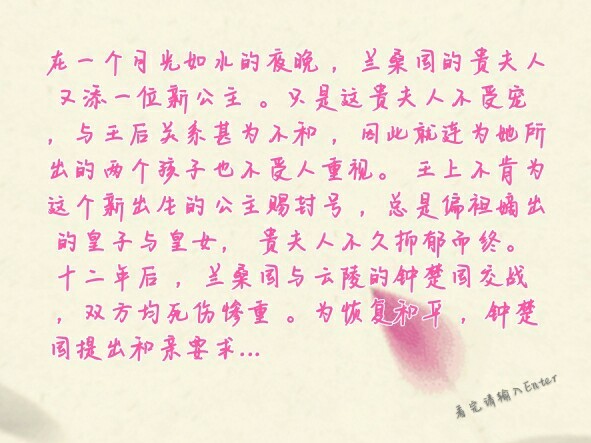 在一个月光如水的夜晚，兰桑国的贵夫人
又添一位新公主。只是这贵夫人不受宠
，与王后关系甚为不和，因此就连为她所
出的两个孩子也不受人重视。王上不肯为
这个新出生的公主赐封号，总是偏袒嫡出
的皇子与皇女， 贵夫人不久抑郁而终。
十二年后，兰桑国与云陵的钟楚国交战
，双方均死伤惨重。为恢复和平，钟楚
国提出和亲要求...
看完请输入Enter